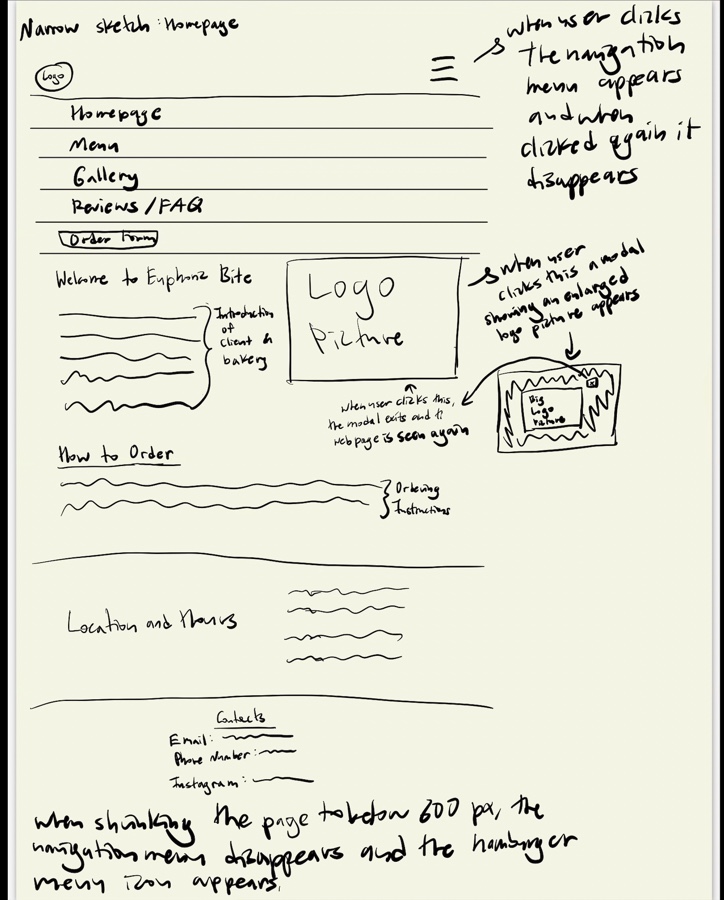 Narrow sketch: Homepage
Logo
when user clicks
the navigation
menu appears
and when
clicked again it
disappears
Homepage
Menu
Gallery
Reviews / FAQ
Order Form
Welcome to Euphoria Bite
Introduction
of
client &
bakery
Logo
Picture
when user
clicks this a modal
showing an enlarged
logo picture appears
X
Big
Logo
Picture
when user clicks this,
the modal exits and
web page is seen again
How to Order
Ordering
Instructions
Location and Hours
Contacts
Email:
Phone Number:
Instagram:
when shrinking the page to below 600 px, the
navigation menu disappears and the hamburger
menu icon appears.